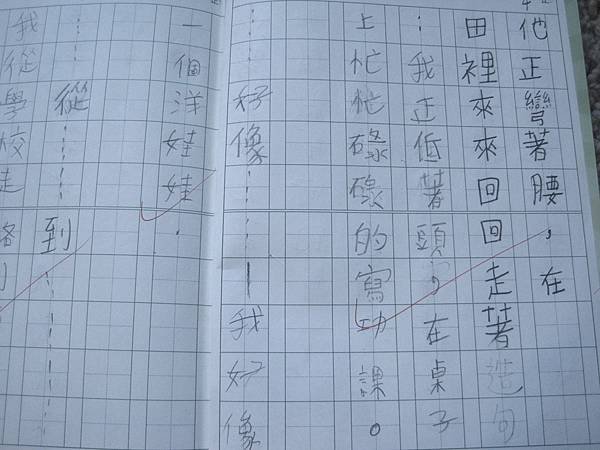 他正彎著腰,在
田裡來來回回走著造句
:我正低著頭,在桌子
上忙忙碌碌的寫功課。
……好像……—我好像
一個洋娃娃.
從……到……
我從學校走路